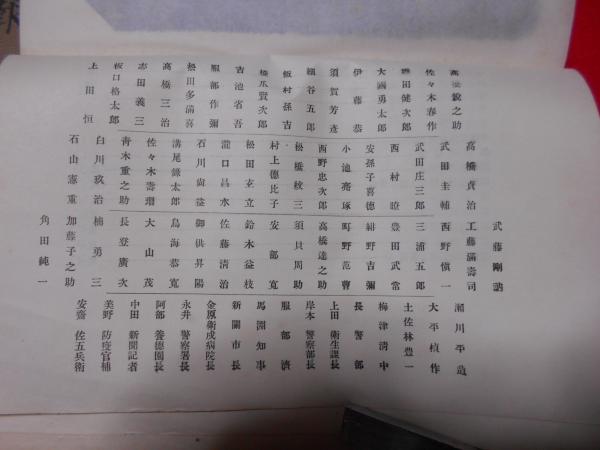 武藤剛
瀬川平造
高橋貞治
工藤滿壽司
大平楨作
佐々木春作
武田圭輔
西野愼一
土佐林豊一
田健次郎
武田庄三郎
三浦五郎
梅津淸中
大國勇太郎
西村瞭
豊田武常
長警部
伊藤恭
安孫子喜德
紺野吉彌
上田衛生課長
須賀芳彦
小池亮琢
町野范曹
岸本警察部長
細谷五郎
西野忠次郎
高橋達之助
服部濟
飯村孫吉
松橋紋三
須貝周助
馬淵知事
橋爪賢次郎
村上德比子
安部寛
新關市長
吉池省吾
松田玄立
鈴木益枝
金原衞戌病院長
服部作彌
瀧口昌水
佐藤淸治
永井警察署長
熱田多滿喜
石川尚益
御供昇陽
阿部養德園長
高橋三治
溝尾錄太郎
鳥海恭寬
中田新聞記者
志田義三
佐々木壽瑠
大山茂
美野防疫官補
坂口格太郎
靑木重之助
長登廣次
安齋佐五兵衛
上田恒
白川玖治
楠勇三
石山憲重
加藤子之助
角田純一